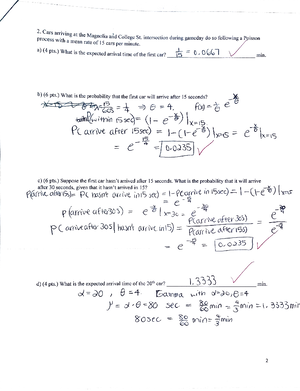 2. Cars arriving at the Magnolia and College St. intersection during gameday do so following a Poisson
process with a mean rate of 15 cars per minute.
a) (4 pts.) What is the expected arrival time of the first car? 1/15 = 0.0667 min.
b) (6 pts.) What is the probability that the first car will arrive after 15 seconds?
15/60 = 1/4 → θ = 4,
P(within 15 sec) = (1 - e^(-x/θ))|x=15
P(arrive after 15 sec) = 1 - (1 - e^(-x/θ))|x=15 = e^(-x/θ)|x=15
= e^(-15/4) = 0.0235
c) (6 pts.) Suppose the first car hasn't arrived after 15 seconds. What is the probability that it will arrive
after 30 seconds, given that it hasn't arrived in 15?
= e^(-15/4)
P(arrive after 30s) = e^(-x/θ)|x=30 = e^(-30/4)
P(arrive after 30s | hasn't arrive in 15) = P(arrive after 30s) / P(arrive after 15s) = e^(-30/4) / e^(-15/4)
= e^(-15/4) = 0.0235
d) (4 pts.) What is the expected arrival time of the 20th car? 1.3333 min.
α = 20, θ = 4 Gamma with α=20, θ=4
μ = α·θ = 80 sec = 80/60 min = 4/3 min = 1.3333 min
80 sec = 80/60 min = 4/3 min
2